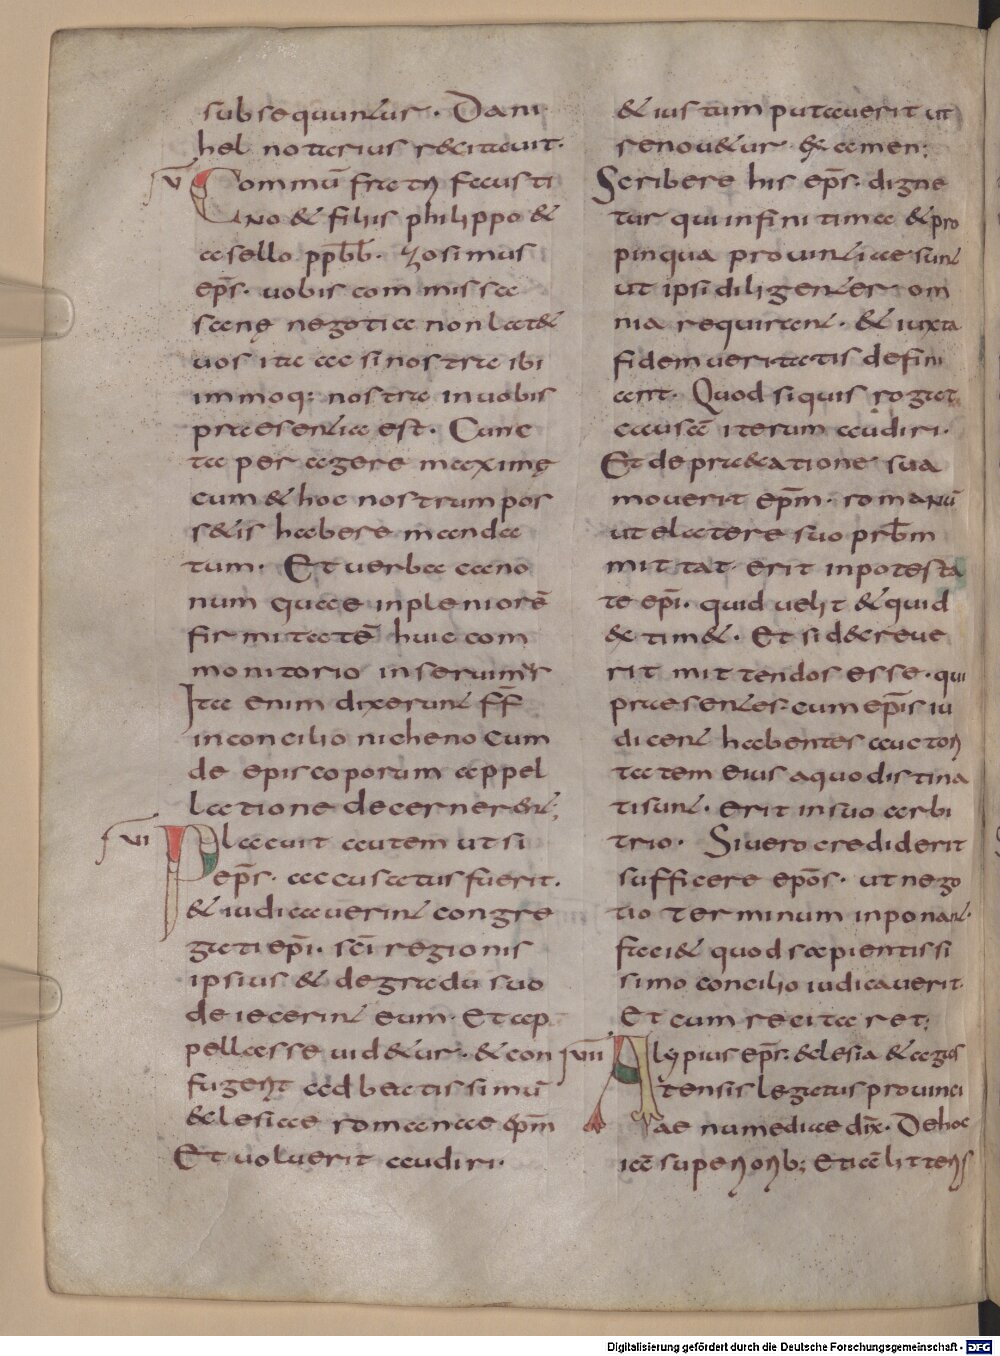 subsequuntur. Dani
hel notarius recitauit.
V Commū fratrꝫ fausti
no & filiis philippo &
asello pp̄bb̄. zosimus
ep̄s. uobis commissa
sanę negotia non lat&
uos ita ac si nostra ibi
immoq; nostra in uobis
praesentia est. Cunc
ta peragere maximę
cum & hoc nostrum pos
s&is habere manda
tum. Et uerba cano
num quae in pleniorē
firmitatē huic com
monitorio inseruimꝰs
Ita enim dixerunt ff̄
in concilio nicheno Cum
de episcoporum appel
latione decernerent;
VI Placuit autem ut si
ep̄s. accusatus fuerit.
& iudicauerint congre
gati ep̄i. sc̄i regionis
ipsius & de gradu suo
deiecerint eum. Et ap
pellasse uid&ur. & con
fugent ad beatissimū
&clesiae romanae ep̄m
Et uoluerit audiri.
& iustum putauerit ut
renou&ur examen;
Scribere his ep̄s. digne
tur qui in finitima & pro
pinqua prouintiae sunt
ut ipsi diligenter om
nia requirant. & iuxta
fidem ueritatis defini
ant. Quod si quis rogat
causā iterum audiri.
Et depraecatione sua
mouerit ep̄m. romanū
ut e latere suo prb̄m
mittat. erit in potesta
te ep̄i. quid uelit & quid
&tim&. Et si d&creue
rit mittendos esse. qui
praesentes cum ep̄is iu
dicent habentes auctorꝫ
tatem eius a quo distina
ti sunt. erit in suo arbi
trio. Si uero crediderit
sufficere ep̄os. ut nego
tio terminum inponant.
faci& quod sapientissi
simo concilio iudicauerit.
Et cum recitaret;
VII Alypius ep̄s. &clesia & agas
tensis legatus prouinci
ae numediae dix̄. De hoc
iā superiorib; Etiā litteris
Digitalisierung gefördert durch die Deutsche Forschungsgemeinschaft - DFG